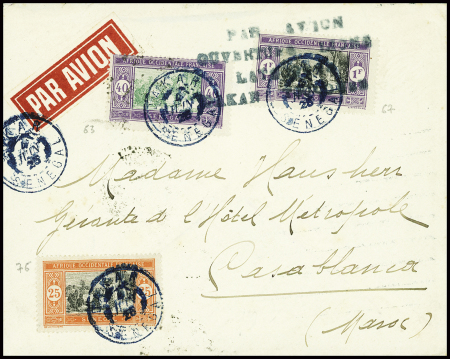 PAR AVION
PAR AVION
OUVERTURE
AFRIQUE OCCIDENTALE FRANÇAISE
40
AFRIQUE OCCIDENTALE FRANÇAISE
1F
1F
DAKAR
SENEGAL
SENEGAL
SENEGAL
63
67
Madame Hausherr
Gérante de l'Hôtel Métropole
Casablanca
(Maroc)
76
AFRIQUE OCCIDENTALE FRANÇAISE
25
SENEGAL